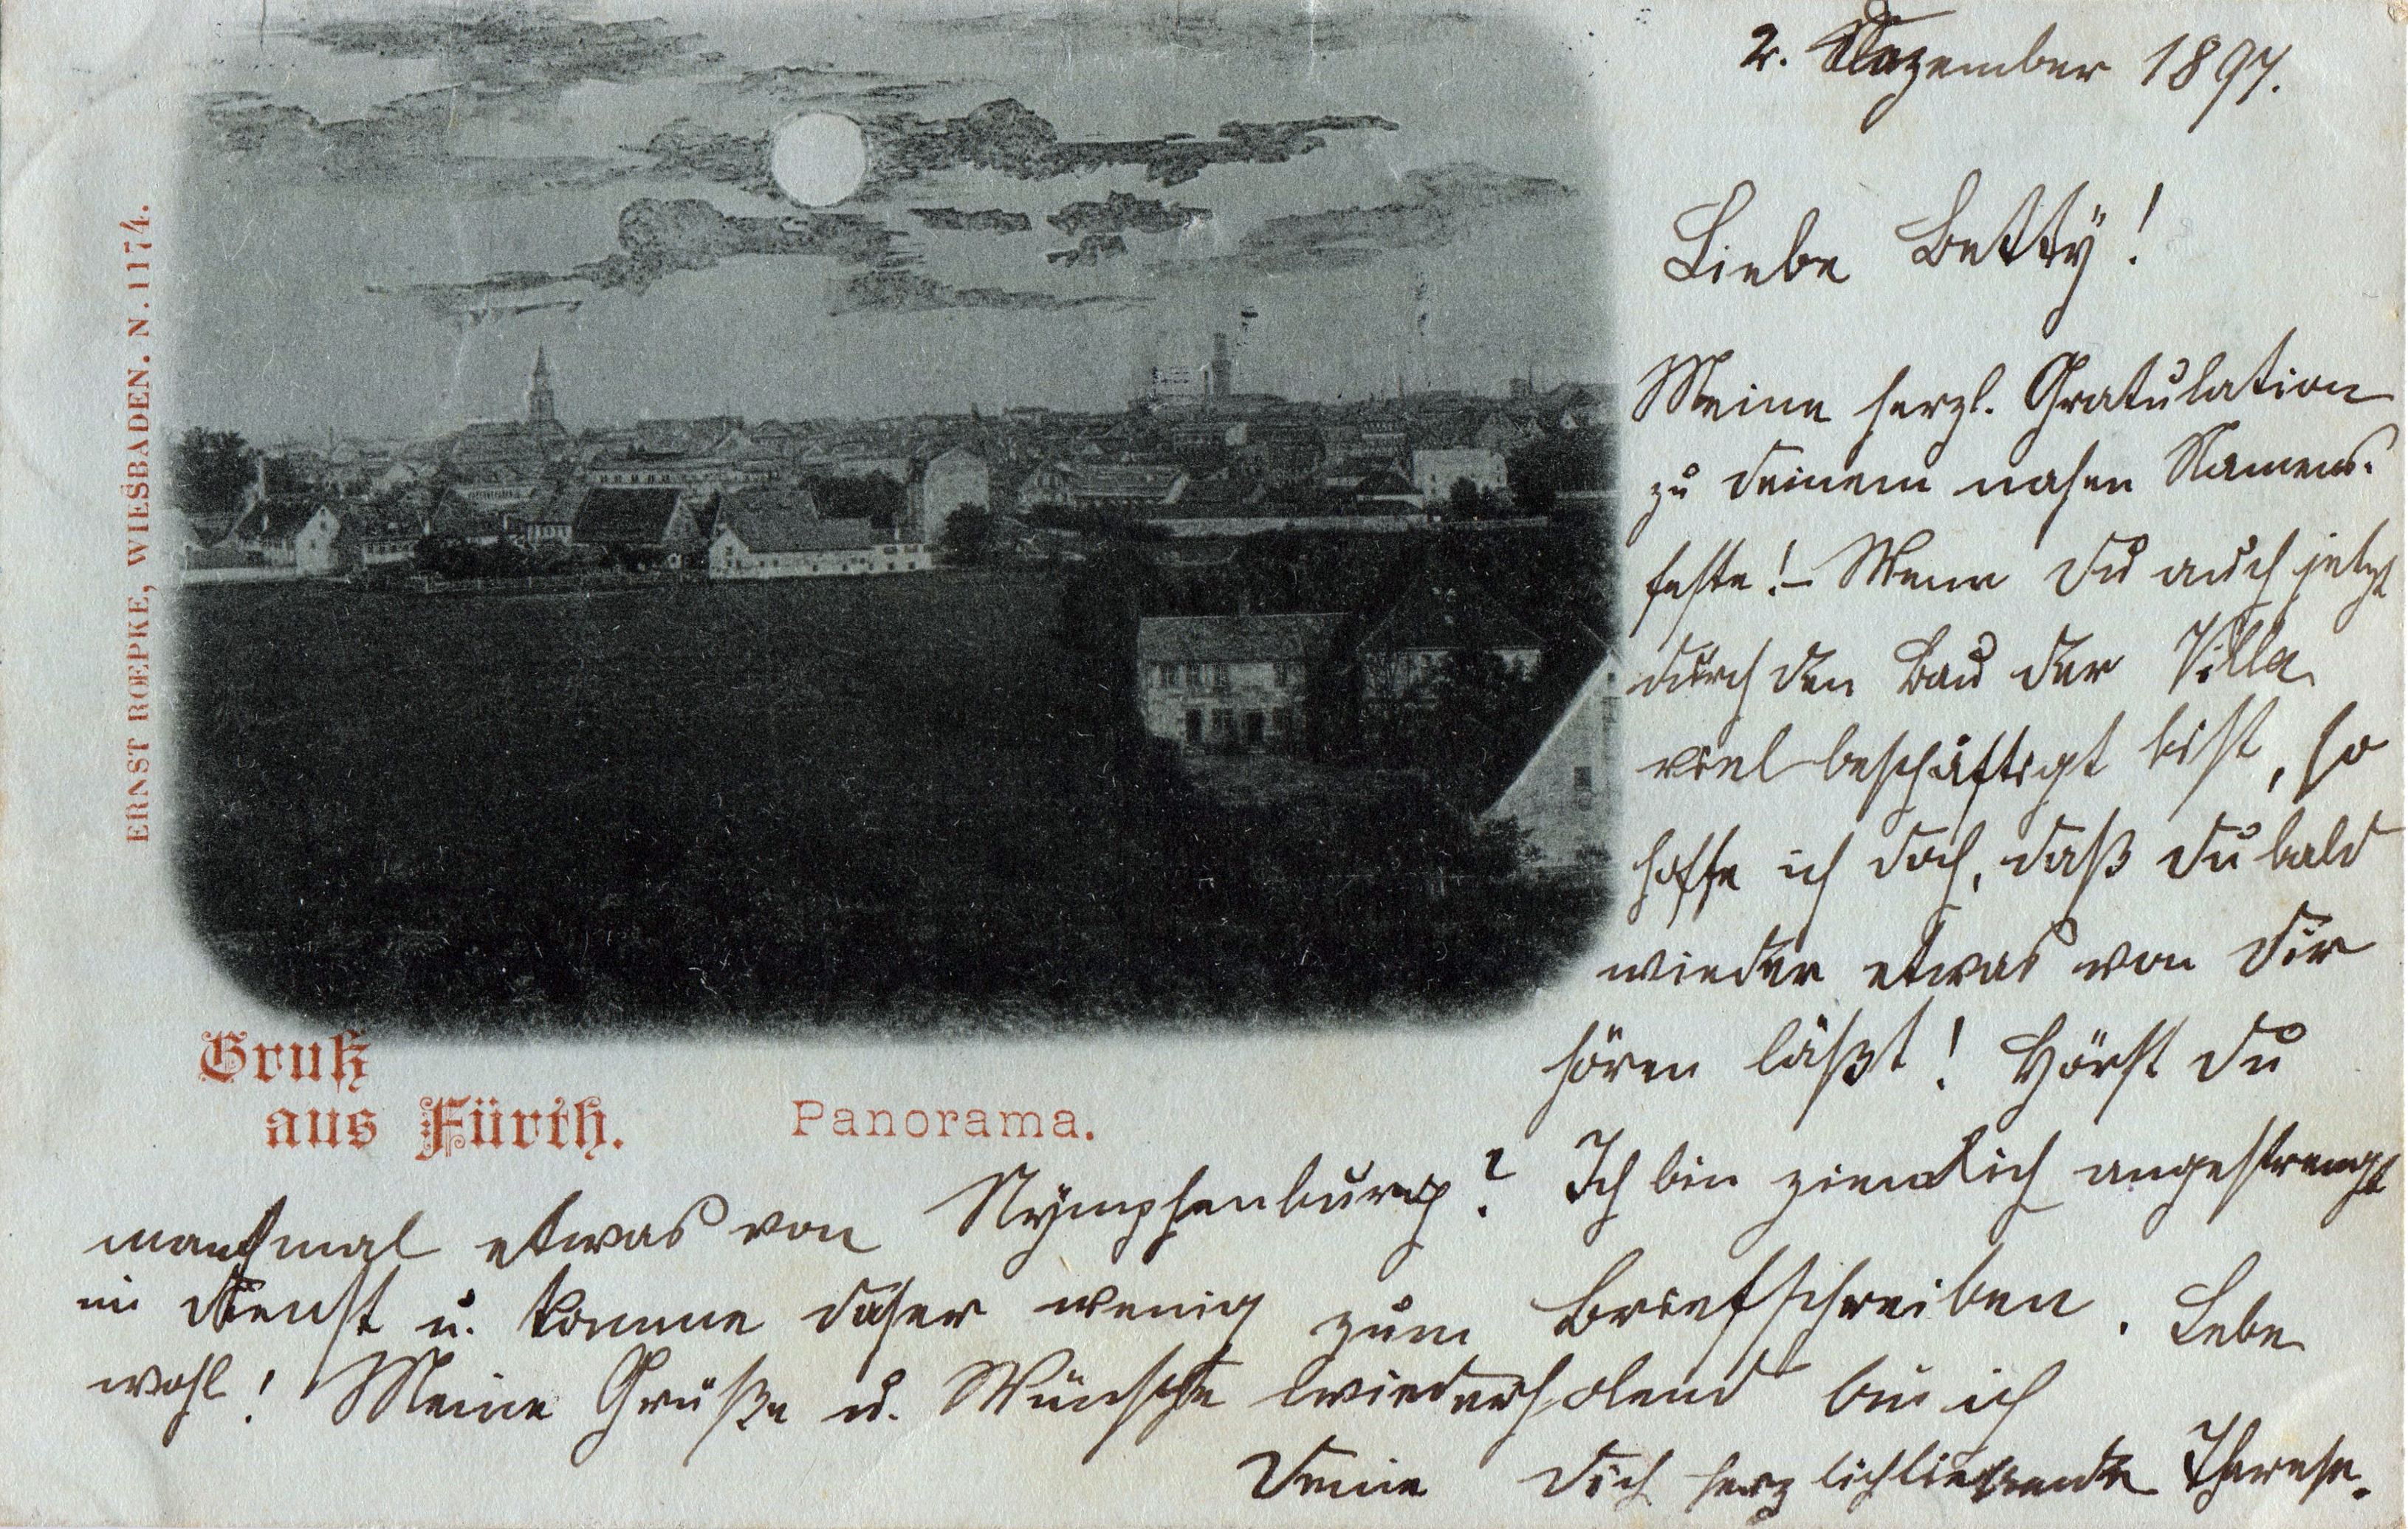 2. Dezember 1897.
Liebe Betty!
Meine herzl. Gratulation
zu deinem nahen Namens-
feste! – Wenn du auch jetzt
durch den Bau der Villa
viel beschäftigt bist, so
hoffe ich doch, daß du bald
wieder etwas von dir
hören läßt! Hörst du
manchmal etwas von Nymphenburg? Ich bin ziemlich angestrengt
im Dienst u. komme daher wenig zum Briefschreiben. Lebe
wohl! Meine Grüße u. Wünsche wiederholend bin ich
Deine dich herzlichliebende Therese.
Gruß
aus Fürth.
Panorama.
ERNST ROEPKE, WIESBADEN. N. 1174.